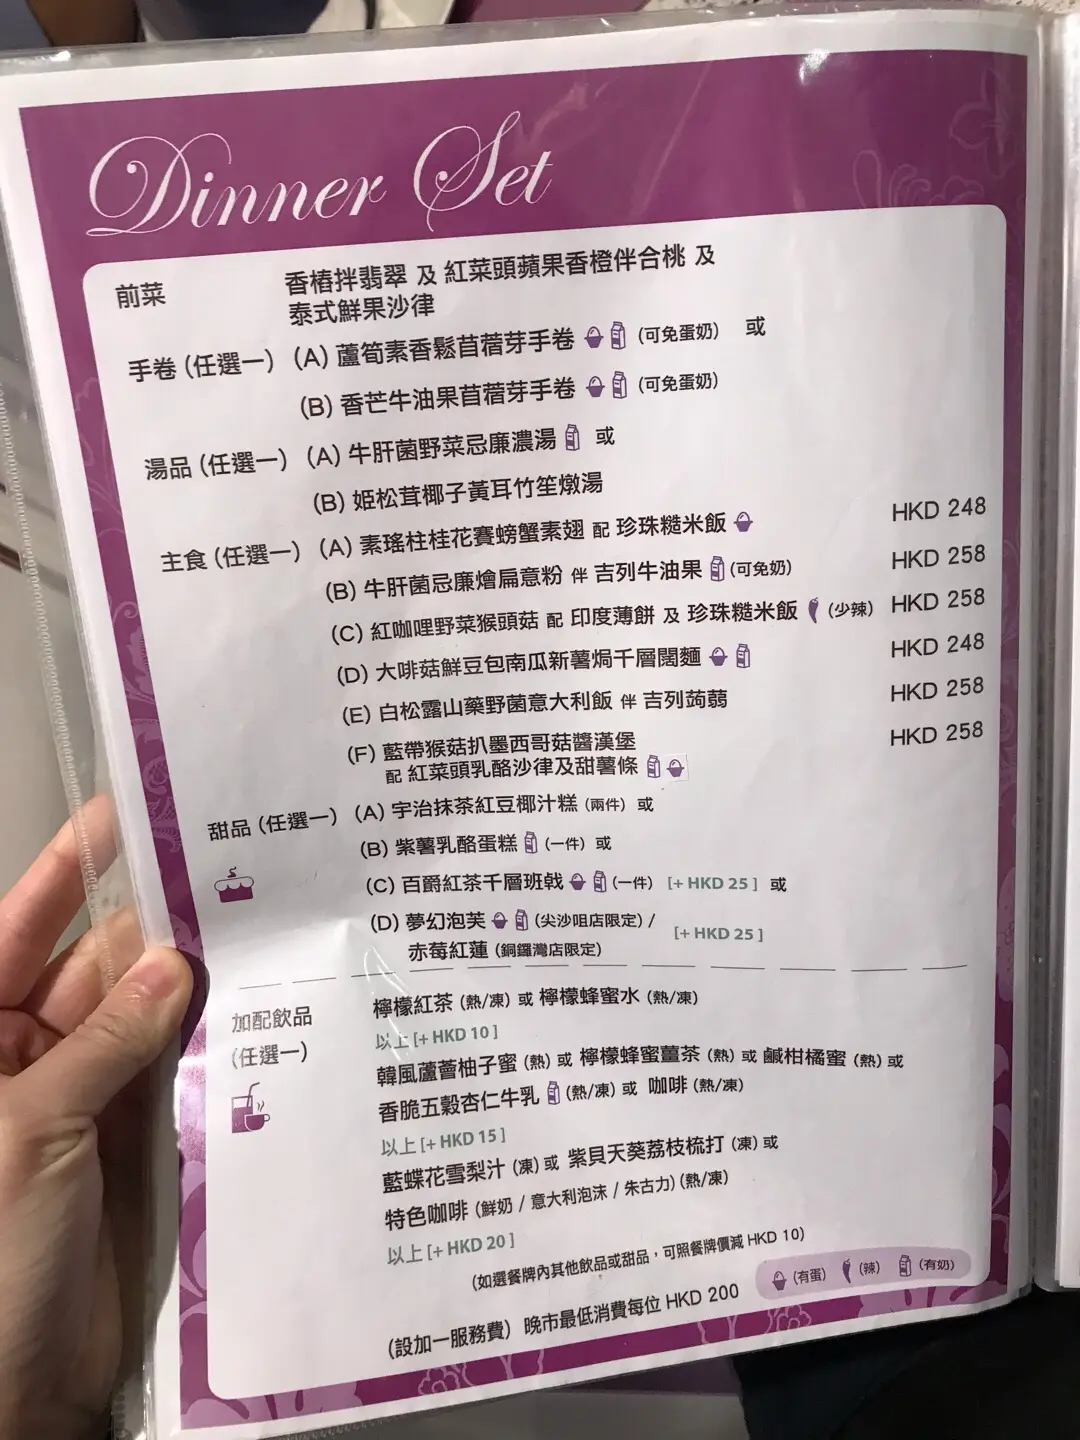 Dinner Set
前菜 香椿拌翡翠 及 紅菜頭蘋果香橙伴合桃 及
泰式鮮果沙律
手卷 (任選一) (A) 蘆筍素香鬆苜蓿芽手卷 (可免蛋奶) 或
(B) 香芒牛油果苜蓿芽手卷 (可免蛋奶)
湯品 (任選一) (A) 牛肝菌野菜忌廉濃湯 或
(B) 姬松茸椰子黃耳竹笙燉湯
主食 (任選一) (A) 素瑤柱桂花賽螃蟹素翅 配 珍珠糙米飯 HKD 248
(B) 牛肝菌忌廉燴扁意粉 伴 吉列牛油果 (可免奶) HKD 258
(C) 紅咖哩野菜猴頭菇 配 印度薄餅 及 珍珠糙米飯 (少辣) HKD 258
(D) 大啡菇鮮豆包南瓜新薯焗千層闊麵 HKD 248
(E) 白松露山藥野菌意大利飯 伴 吉列蒟蒻 HKD 258
(F) 藍帶猴菇扒墨西哥菇醬漢堡 HKD 258
配 紅菜頭乳酪沙律及甜薯條
甜品 (任選一) (A) 宇治抹茶紅豆椰汁糕 (兩件) 或
(B) 紫薯乳酪蛋糕 (一件) 或
(C) 百爵紅茶千層班戟 (一件) [+ HKD 25] 或
(D) 夢幻泡芙 (尖沙咀店限定) /
赤莓紅蓮 (銅鑼灣店限定) [+ HKD 25]
加配飲品 檸檬紅茶 (熱/凍) 或 檸檬蜂蜜水 (熱/凍)
(任選一) 以上 [+ HKD 10]
韓風蘆薈柚子蜜 (熱) 或 檸檬蜂蜜薑茶 (熱) 或 鹹柑橘蜜 (熱) 或
香脆五穀杏仁牛乳 (熱/凍) 或 咖啡 (熱/凍)
以上 [+ HKD 15]
藍蝶花雪梨汁 (凍) 或 紫貝天葵荔枝梳打 (凍) 或
特色咖啡 (鮮奶 / 意大利泡沫 / 朱古力) (熱/凍)
以上 [+ HKD 20]
(如選餐牌內其他飲品或甜品，可照餐牌價減 HKD 10)
(有蛋) (辣) (有奶)
(設加一服務費) 晚市最低消費每位 HKD 200